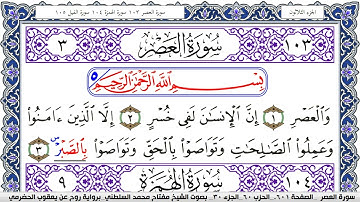 الجزء الثلاثون سورة العصر ١٠٣ سورة الهمزة ١٠٤ سورة الفيل ١٠٥
١٠٣ سُورَةُ العَصْرِ ٣
بِسْمِ اللَّهِ الرَّحْمَٰنِ الرَّحِيمِ
وَالْعَصْرِ ١ إِنَّ الْإِنسَٰنَ لَفِى خُسْرٍ ٢ إِلَّا الَّذِينَ ءَامَنُوا
وَعَمِلُوا الصَّٰلِحَٰتِ وَتَوَاصَوْا بِالْحَقِّ وَتَوَاصَوْا بِالصَّبْرِ ٣
١٠٤ سُورَةُ الهُمَزَةِ ٩
سورة العصر . الصفحة ٦٠١ . الحزب ٦٠ . الجزء ٣٠ . بصوت الشيخ مفتاح محمد السلطني . برواية روح عن يعقوب الحضرمي